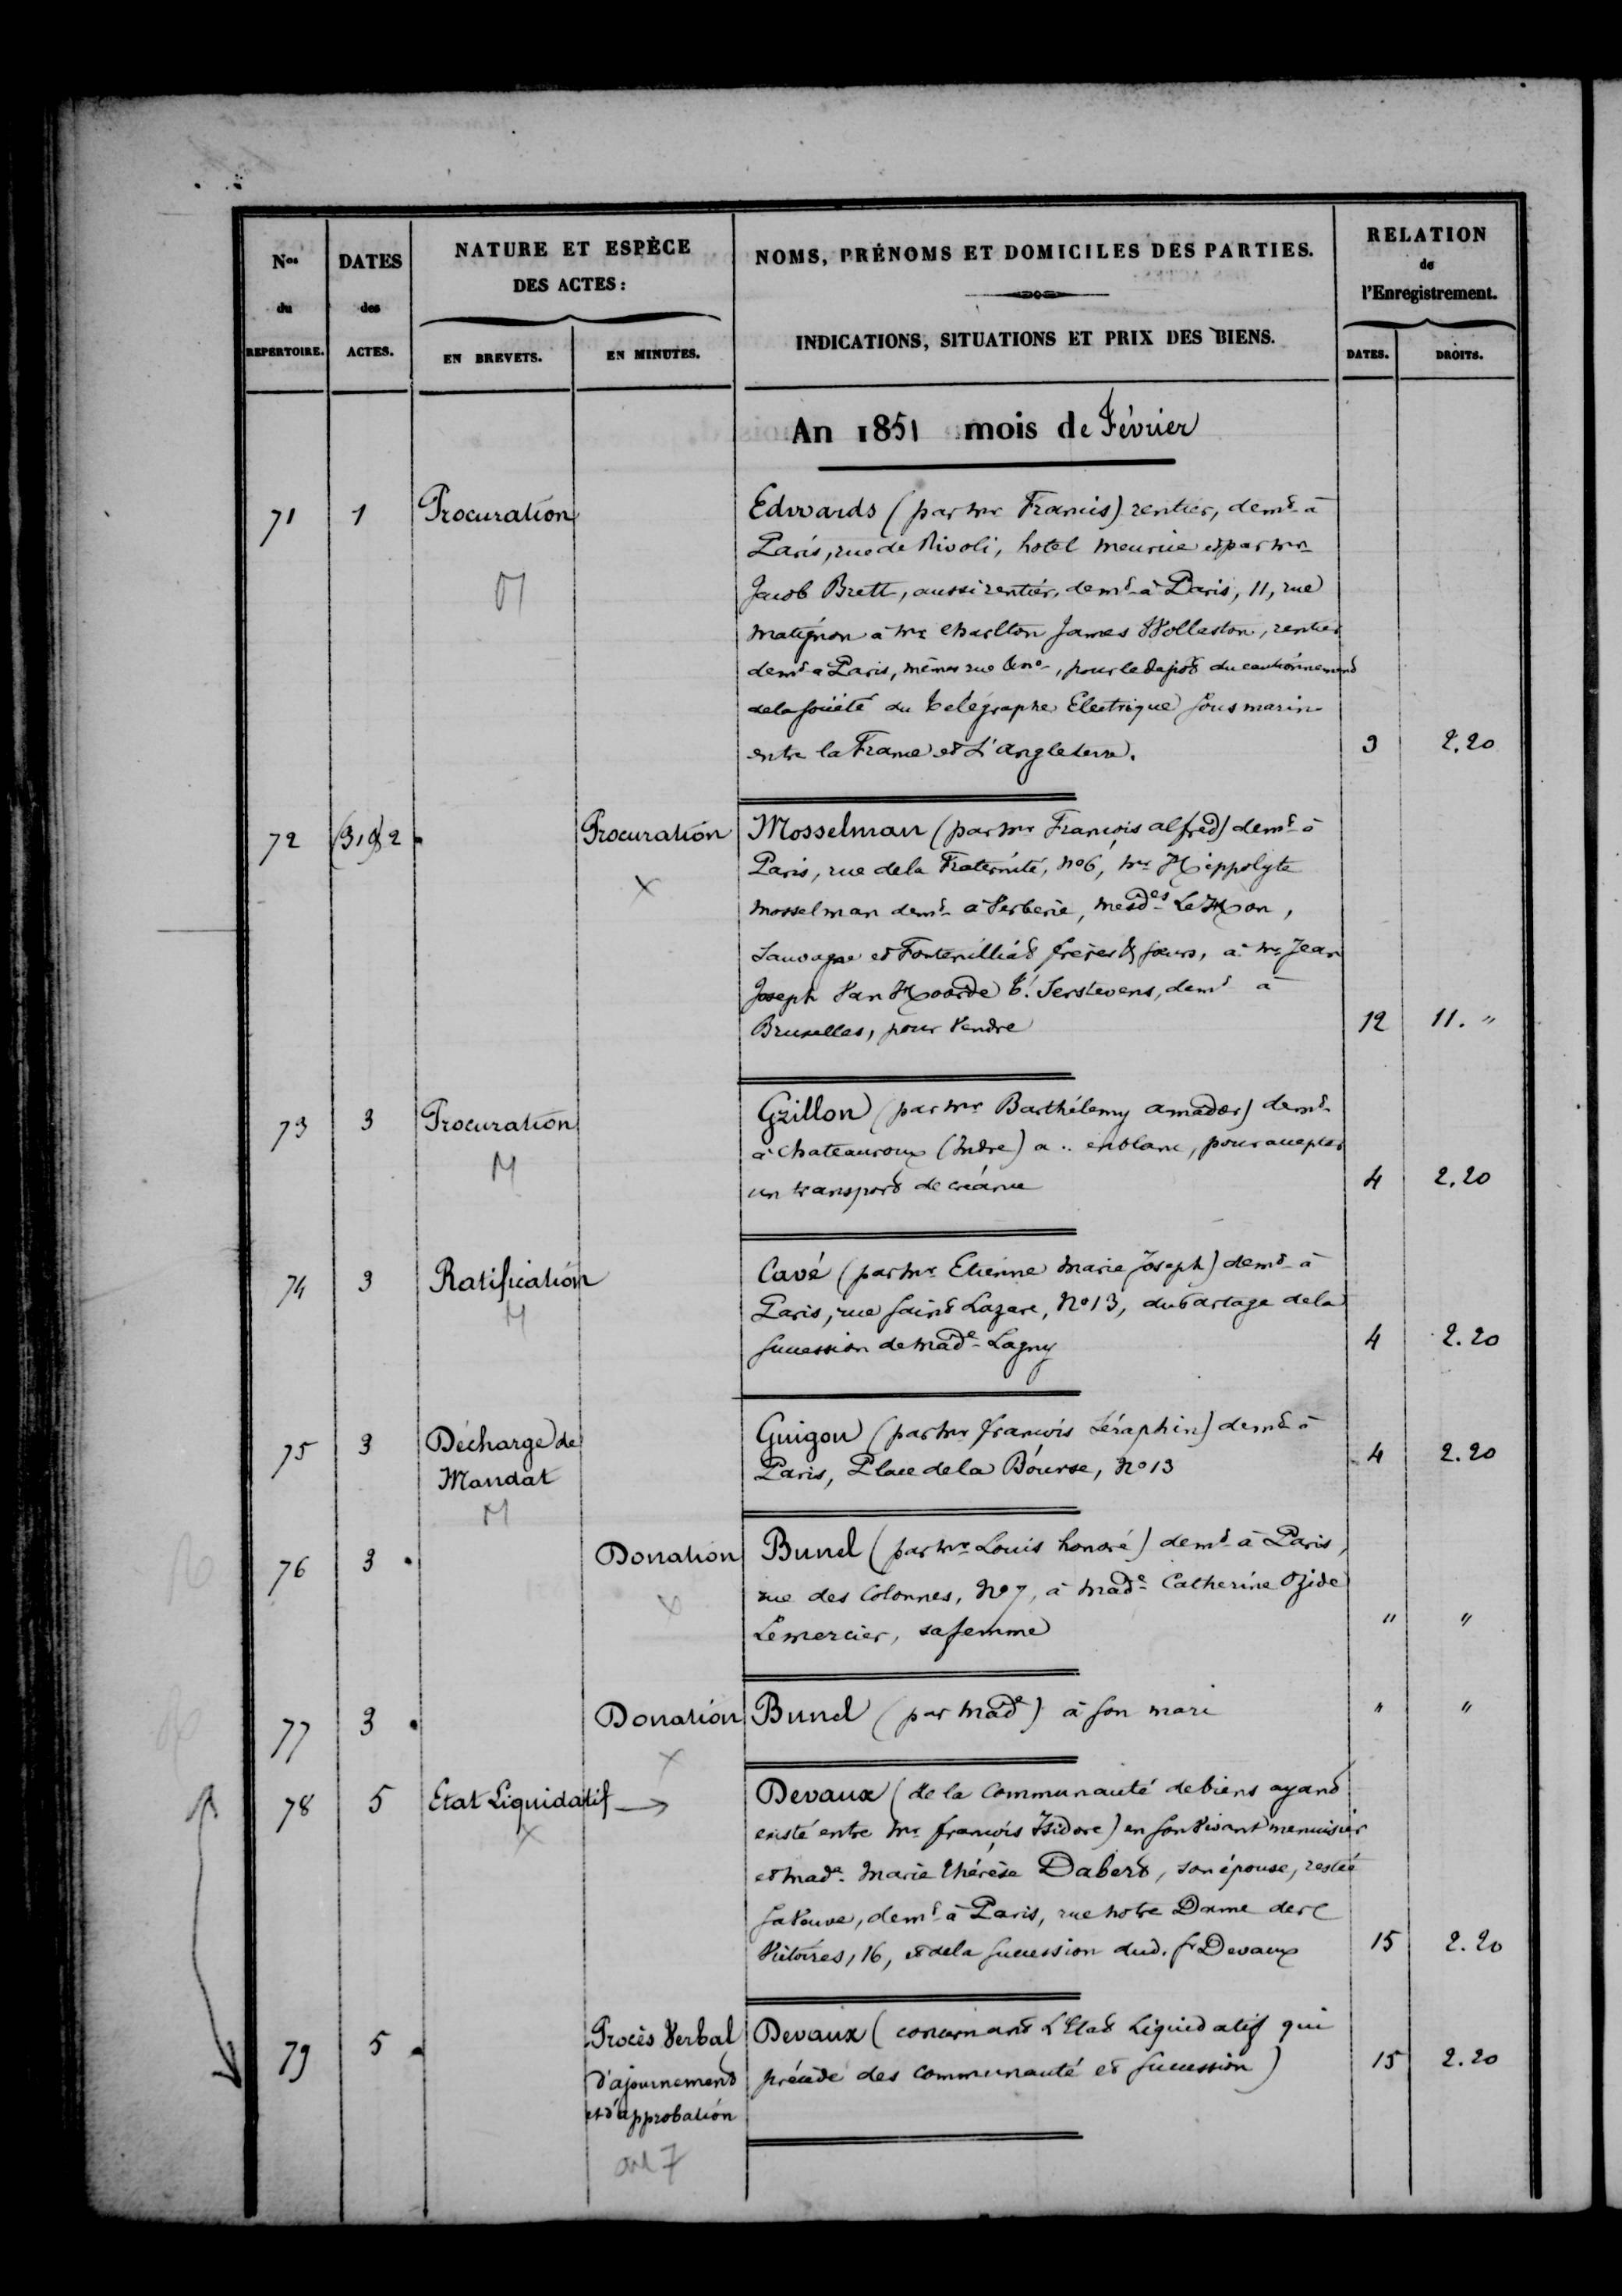 Nos
du
REPERTOIRE.
DATES
des
ACTES.
NATURE ET ESPÈCE
DES ACTES:
EN BREVETS.
EN MINUTES.
NOMS, PRÉNOMS ET DOMICILES DES PARTIES.
INDICATIONS, SITUATIONS ET PRIX DES BIENS.
RELATION
de
l'Enregistrement.
DATES.
DROITS.
An 1851 mois de Février
71 1 Procuration Edwards (par Mr Francis) rentier, demt à
Paris, rue de Rivoli, hotel Meurice et par Mr
Jacob Brett, aussi rentier, demt à Paris, 11, rue
M
Matignon à Mr Charlton James Wollaston, rentier
demt à Paris, mêmes rue & no, pour le dépot du cautionnement
de la société du télégraphe Electrique sous marin
entre la France et L'angleterre. 3 2.20
72 (31 & 2 Procuration Mosselman (par Mr François alfred) demt à
Paris, rue de la Fraternité, no 6, Mr Hippolyte
X
Mosselman demt à Verberie, mesdes Le Hon,
Sauvage et Fontenilliat frères & sœurs, à Mr Jean
Joseph Van Hoorde t'. Serstevens, demt à
Bruxelles, pour Vendre 12 11. "
73 3 Procuration Grillon (par Mr Barthélemy amador) demt
à Chateauroux (Indre) a .. en blanc, pour accepter
M
un transport de créance 4 2.20
74 3 Ratification Cavé (par Mr Etienne Marie Joseph) demt à
Paris, rue Saint Lazare, No 13, du partage de la
M
succession de Made Lagny 4 2.20
75 3 Décharge de Guigou (par Mr françois Séraphin) demt à
Mandat Paris, Place de la Bourse, No 13 4 2.20
M
76 3 Donation Bunel (par Mr Louis honoré) demt à Paris,
rue des Colonnes, No 7, à Made Catherine Ozide
X
Lemercier, sa femme " "
77 3 Donation Bunel (par Made) à son mari " "
X
78 5 Etat Liquidatif Devaux (de la Communauté de biens ayant
existé entre Mr françois Isidore) en son Vivant menuisier
X
et Made Marie thérèse Dabert, son épouse, restée
sa Veuve, demt à Paris, rue Notre Dame des
Victoires, 16, et de la succession dud. sr Devaux 15 2.20
79 5 Procès Verbal Devaux (concernant L'Etat Liquidatif qui
d'ajournement précède des Communauté et succession) 15 2.20
et d'approbation